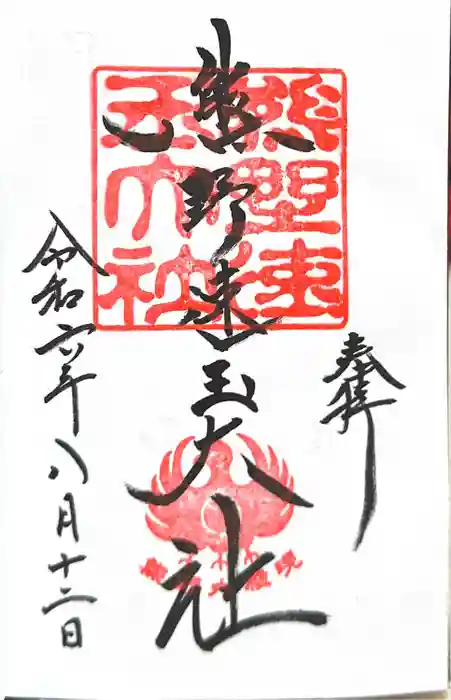 奉拝
熊野速玉大社
熊野速玉大社
令和六年八月十二日